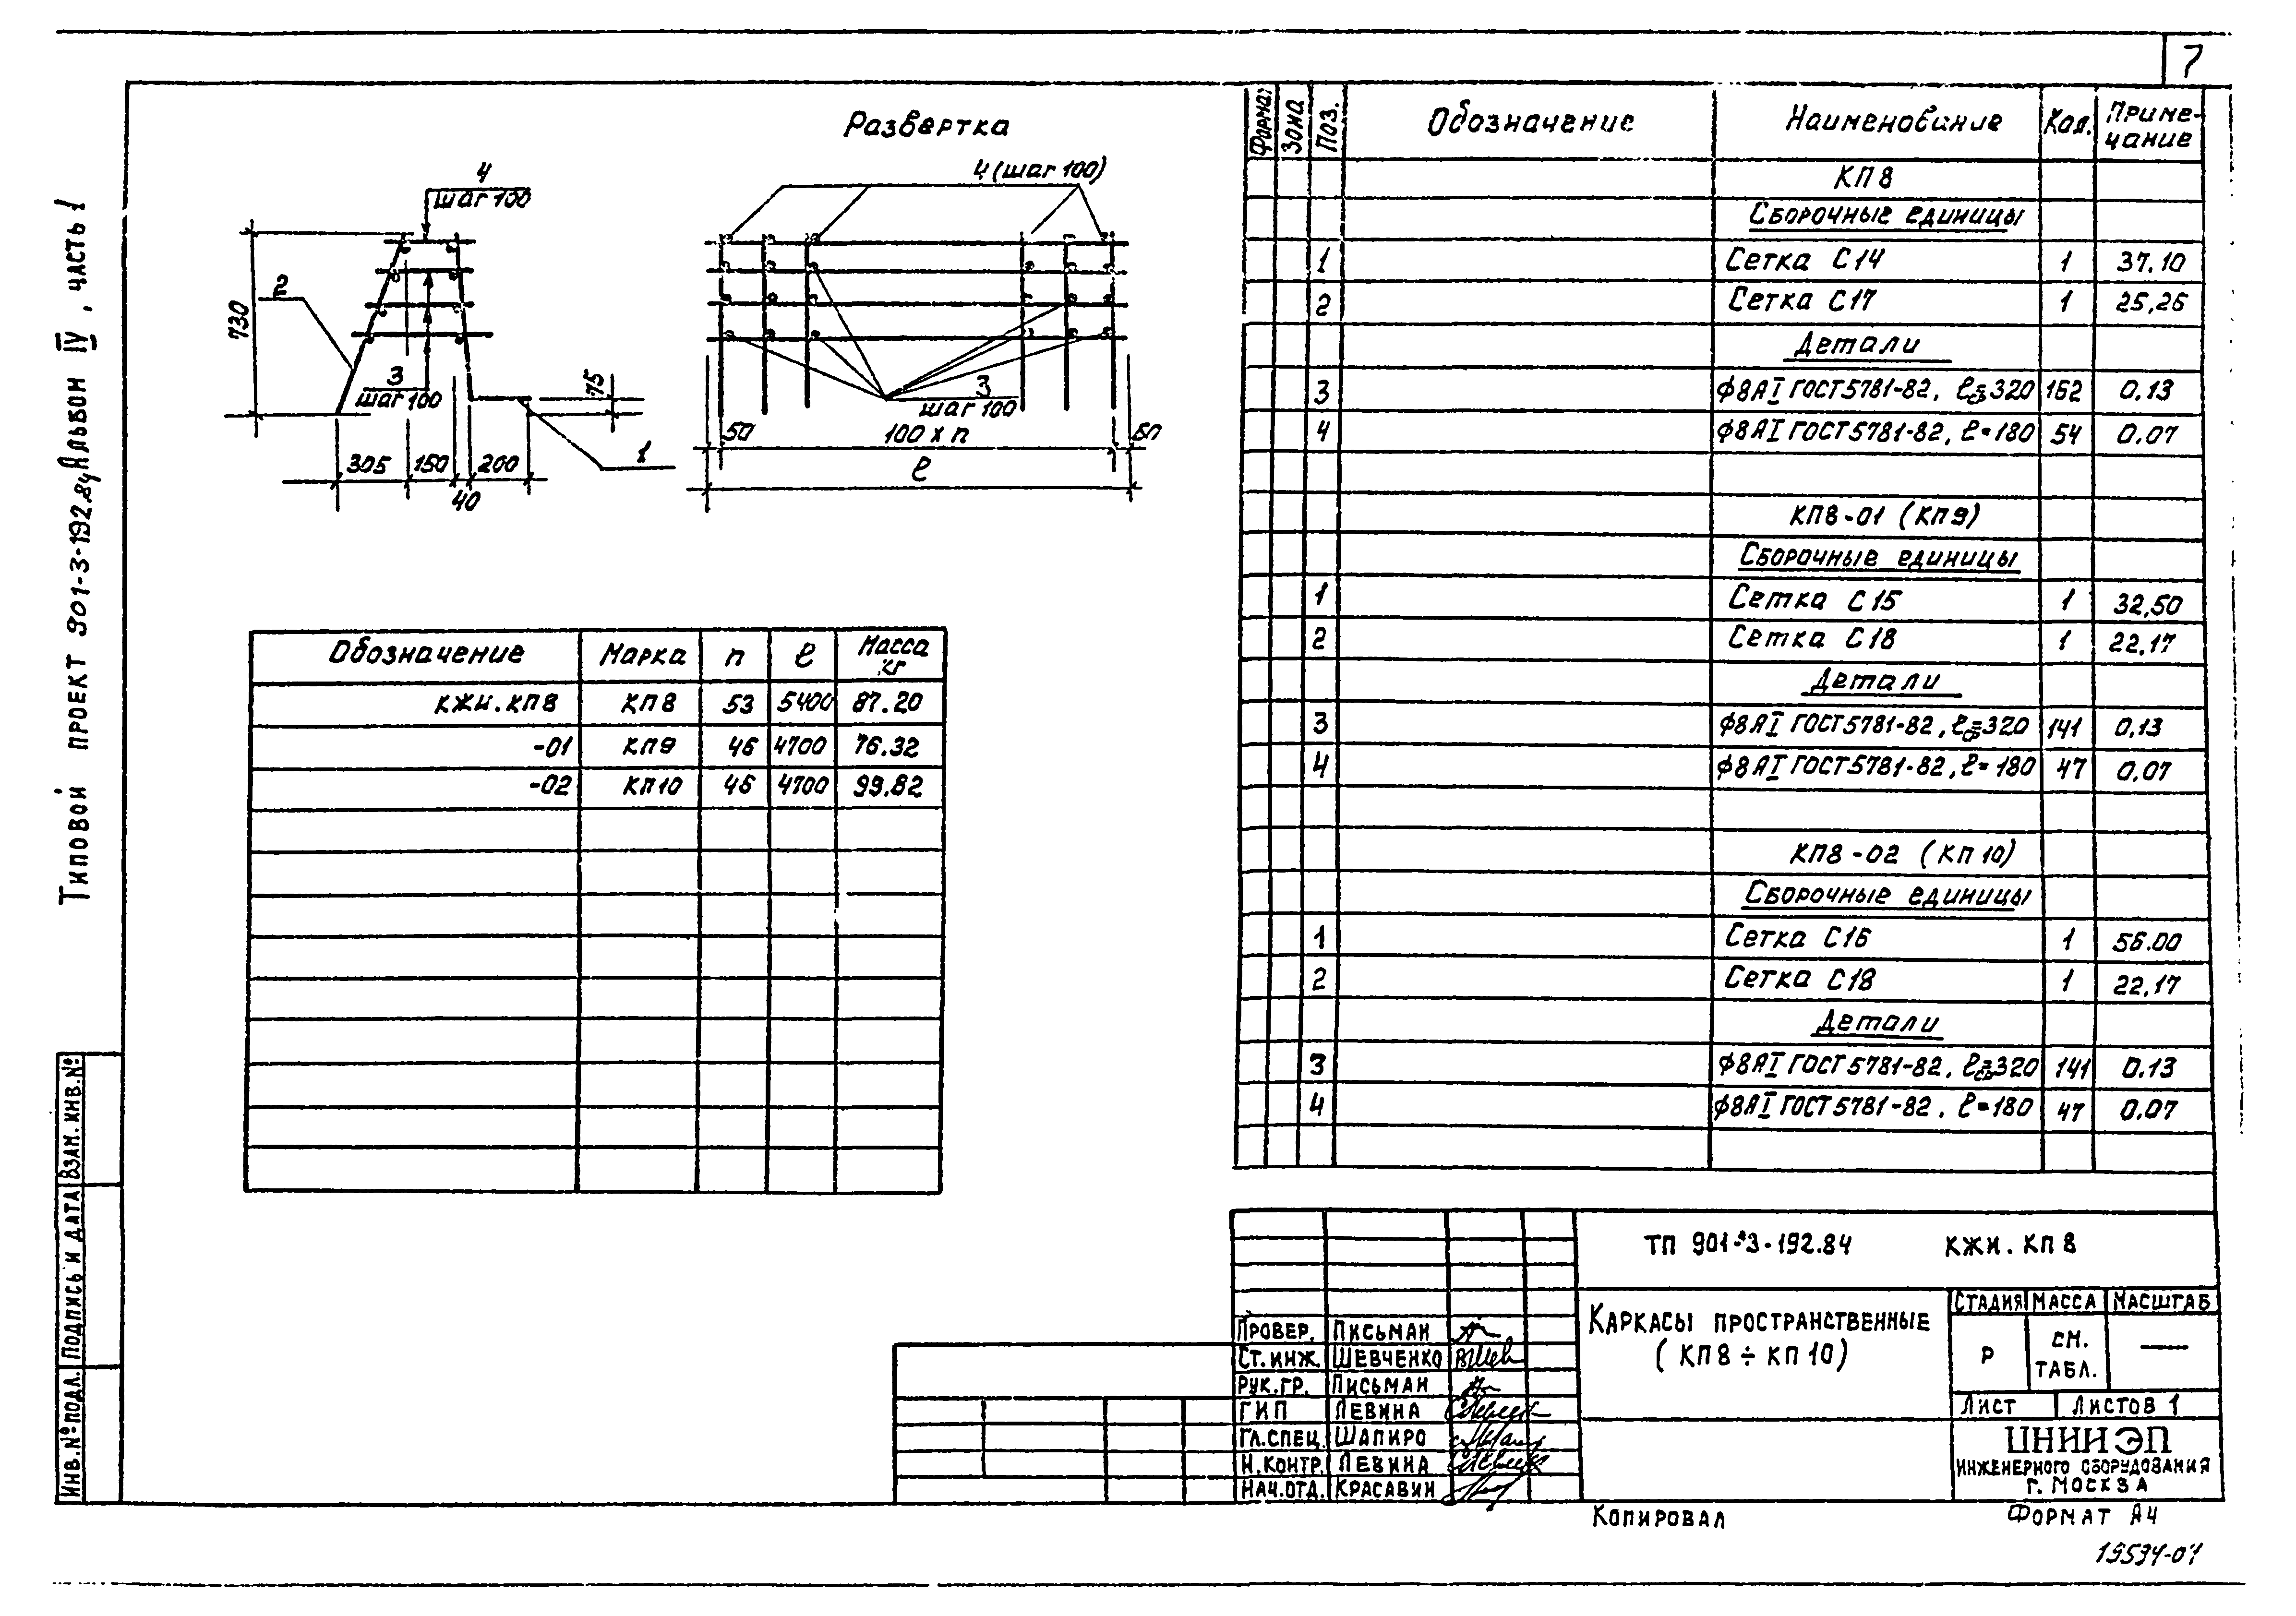 7
Типовой проект 901-3-192.84 Альбом IV, часть 1
Развертка
4
шаг 100
730
2
3
шаг 100
15
305 150 200
40
1
4 (шаг 100)
3
шаг 100
50 100 х n 50
ℓ
Обозначение Марка n ℓ Масса кг
КЖИ.КП8 КП8 53 5400 87.20
-01 КП9 46 4700 76.32
-02 КП10 46 4700 99.82
Формат Зона Поз. Обозначение Наименование Кол. Приме-
чание
КП8
Сборочные единицы
1 Сетка С14 1 37.10
2 Сетка С17 1 25,26
Детали
3 Ф8АI ГОСТ5781-82, ℓср=320 162 0.13
4 Ф8АI ГОСТ5781-82, ℓ=180 54 0.07
КП8-01 (КП9)
Сборочные единицы
1 Сетка С15 1 32,50
2 Сетка С18 1 22,17
Детали
3 Ф8АI ГОСТ5781-82, ℓср=320 141 0,13
4 Ф8АI ГОСТ5781-82, ℓ=180 47 0,07
КП8-02 (КП10)
Сборочные единицы
1 Сетка С16 1 56.00
2 Сетка С18 1 22,17
Детали
3 Ф8АI ГОСТ5781-82, ℓср=320 141 0.13
4 Ф8АI ГОСТ5781-82, ℓ=180 47 0.07
Инв.№подл. Подпись и дата Взам. инв.№
ТП 901-3-192.84 КЖИ.КП8
Провер. Письман
Ст.инж. Шевченко
Рук.гр. Письман
ГИП Левина
Гл.спец. Шапиро
Н.контр. Левина
Нач.отд. Красавин
Каркасы пространственные
(КП8÷КП10)
Стадия Масса Масштаб
Р см. табл. —
Лист Листов 1
ЦНИИЭП
инженерного оборудования
г. Москва
Копировал Формат А4
19534-07